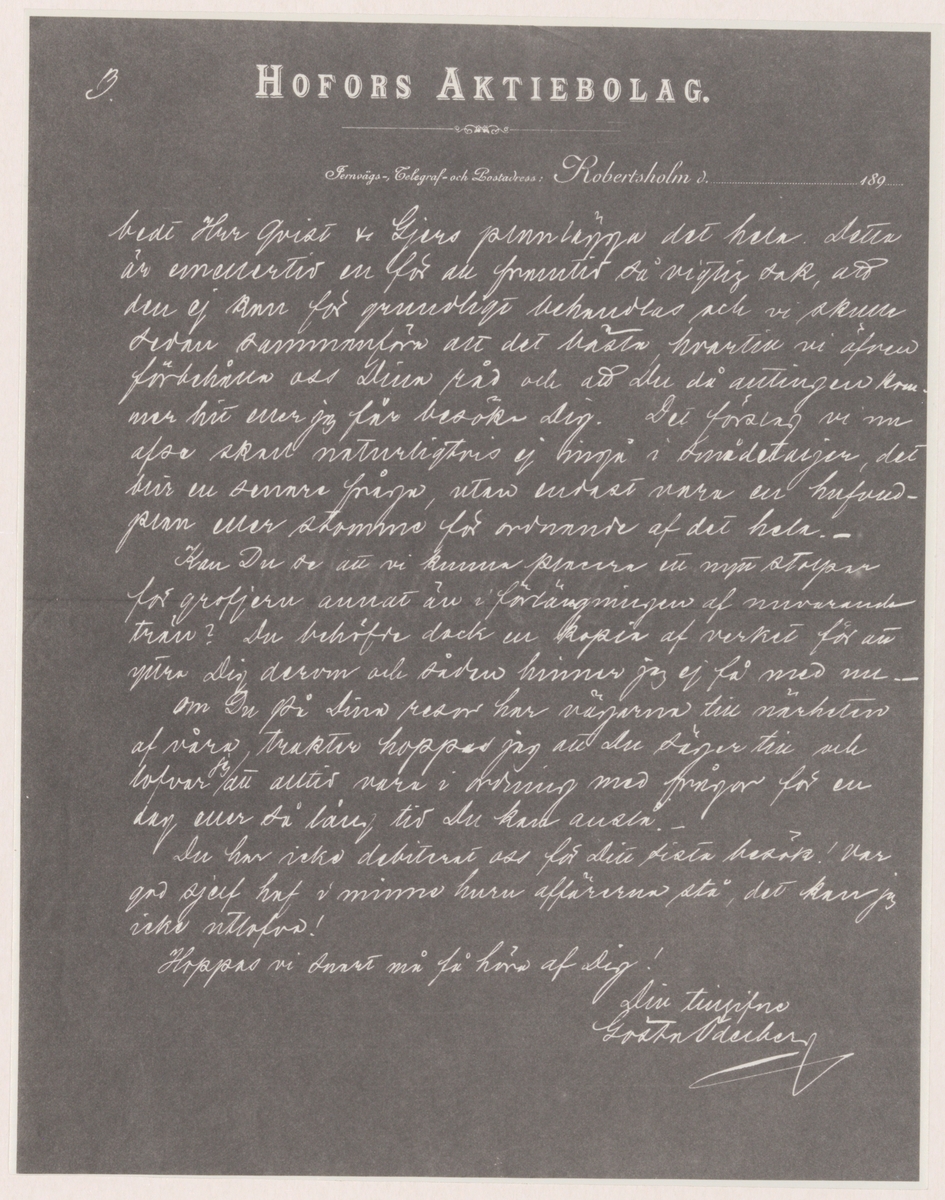 3.
HOFORS AKTIEBOLAG.
Jernvägs-, Telegraf- och Postadress: Robertsholm d. 189
bedt Herr Qvist & Gjers planlägga det hela. Detta
är emellertid en för all framtid så vigtig sak, att
den ej kan för grundligt behandlas och vi skulle
sedan sammanföra allt det bästa, hvartill vi äfven
förbehålla oss Dina råd och att Du då antingen kom-
mer hit eller jg får besöka Dig. Det förslag vi nu
afse skall naturligtvis ej ingå i smådetaljer, det
blir en senare fråga, utan endast vara en hufvud-
plan eller stomme för ordnande af det hela.—
Kan Du se att vi kunna placera ett nytt stolpar
for grofjern annat än i förlängningen af nuvarande
trän? Du behöfde dock en kopia af verket för att
yttra Dig derom och sådan hinner jg ej få med nu.—
Om Du på Dina resor har vägarna till närheten
af våra trakter hoppas jag att Du säger till och
lofvar jg att alltid vara i ordning med frågor för en
dag eller så lång tid Du kan anslå.—
Du har icke debiterat oss för Ditt sista besök! Var
god sjelf haf i minne huru affärerna stå, det kan jg
icke utlofva!
Hoppas vi snart må få höra af Dig!
Din tillgifne
Gösta Öderberg